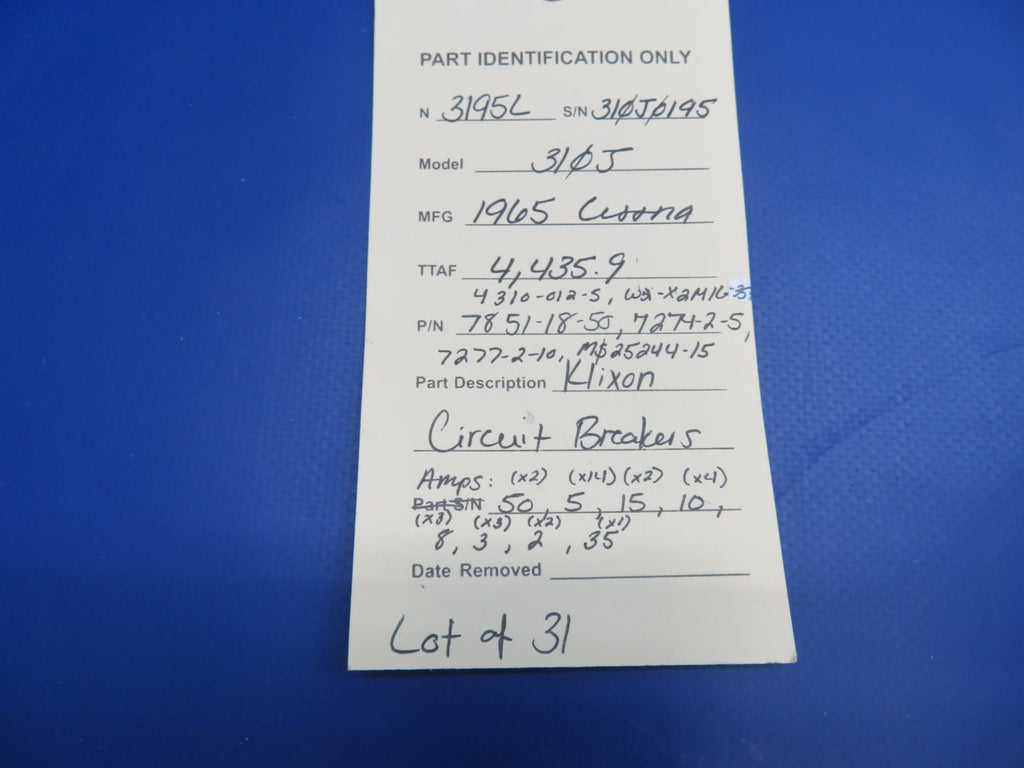 PART IDENTIFICATION ONLY
N 3195L S/N 310J0195
Model 310J
MFG 1965 Cessna
TTAF 4,435.9
4310-012-5, W31-X2M1G-35
P/N 7851-18-50, 7274-2-5,
7277-2-10, MS25244-15
Part Description Klixon
Circuit Breakers
Amps: (x2) (x14) (x2) (x4)
Part S/N 50, 5, 15, 10,
(x3) (x3) (x2) (x1)
8, 3, 2, 35
Date Removed
Lot of 31